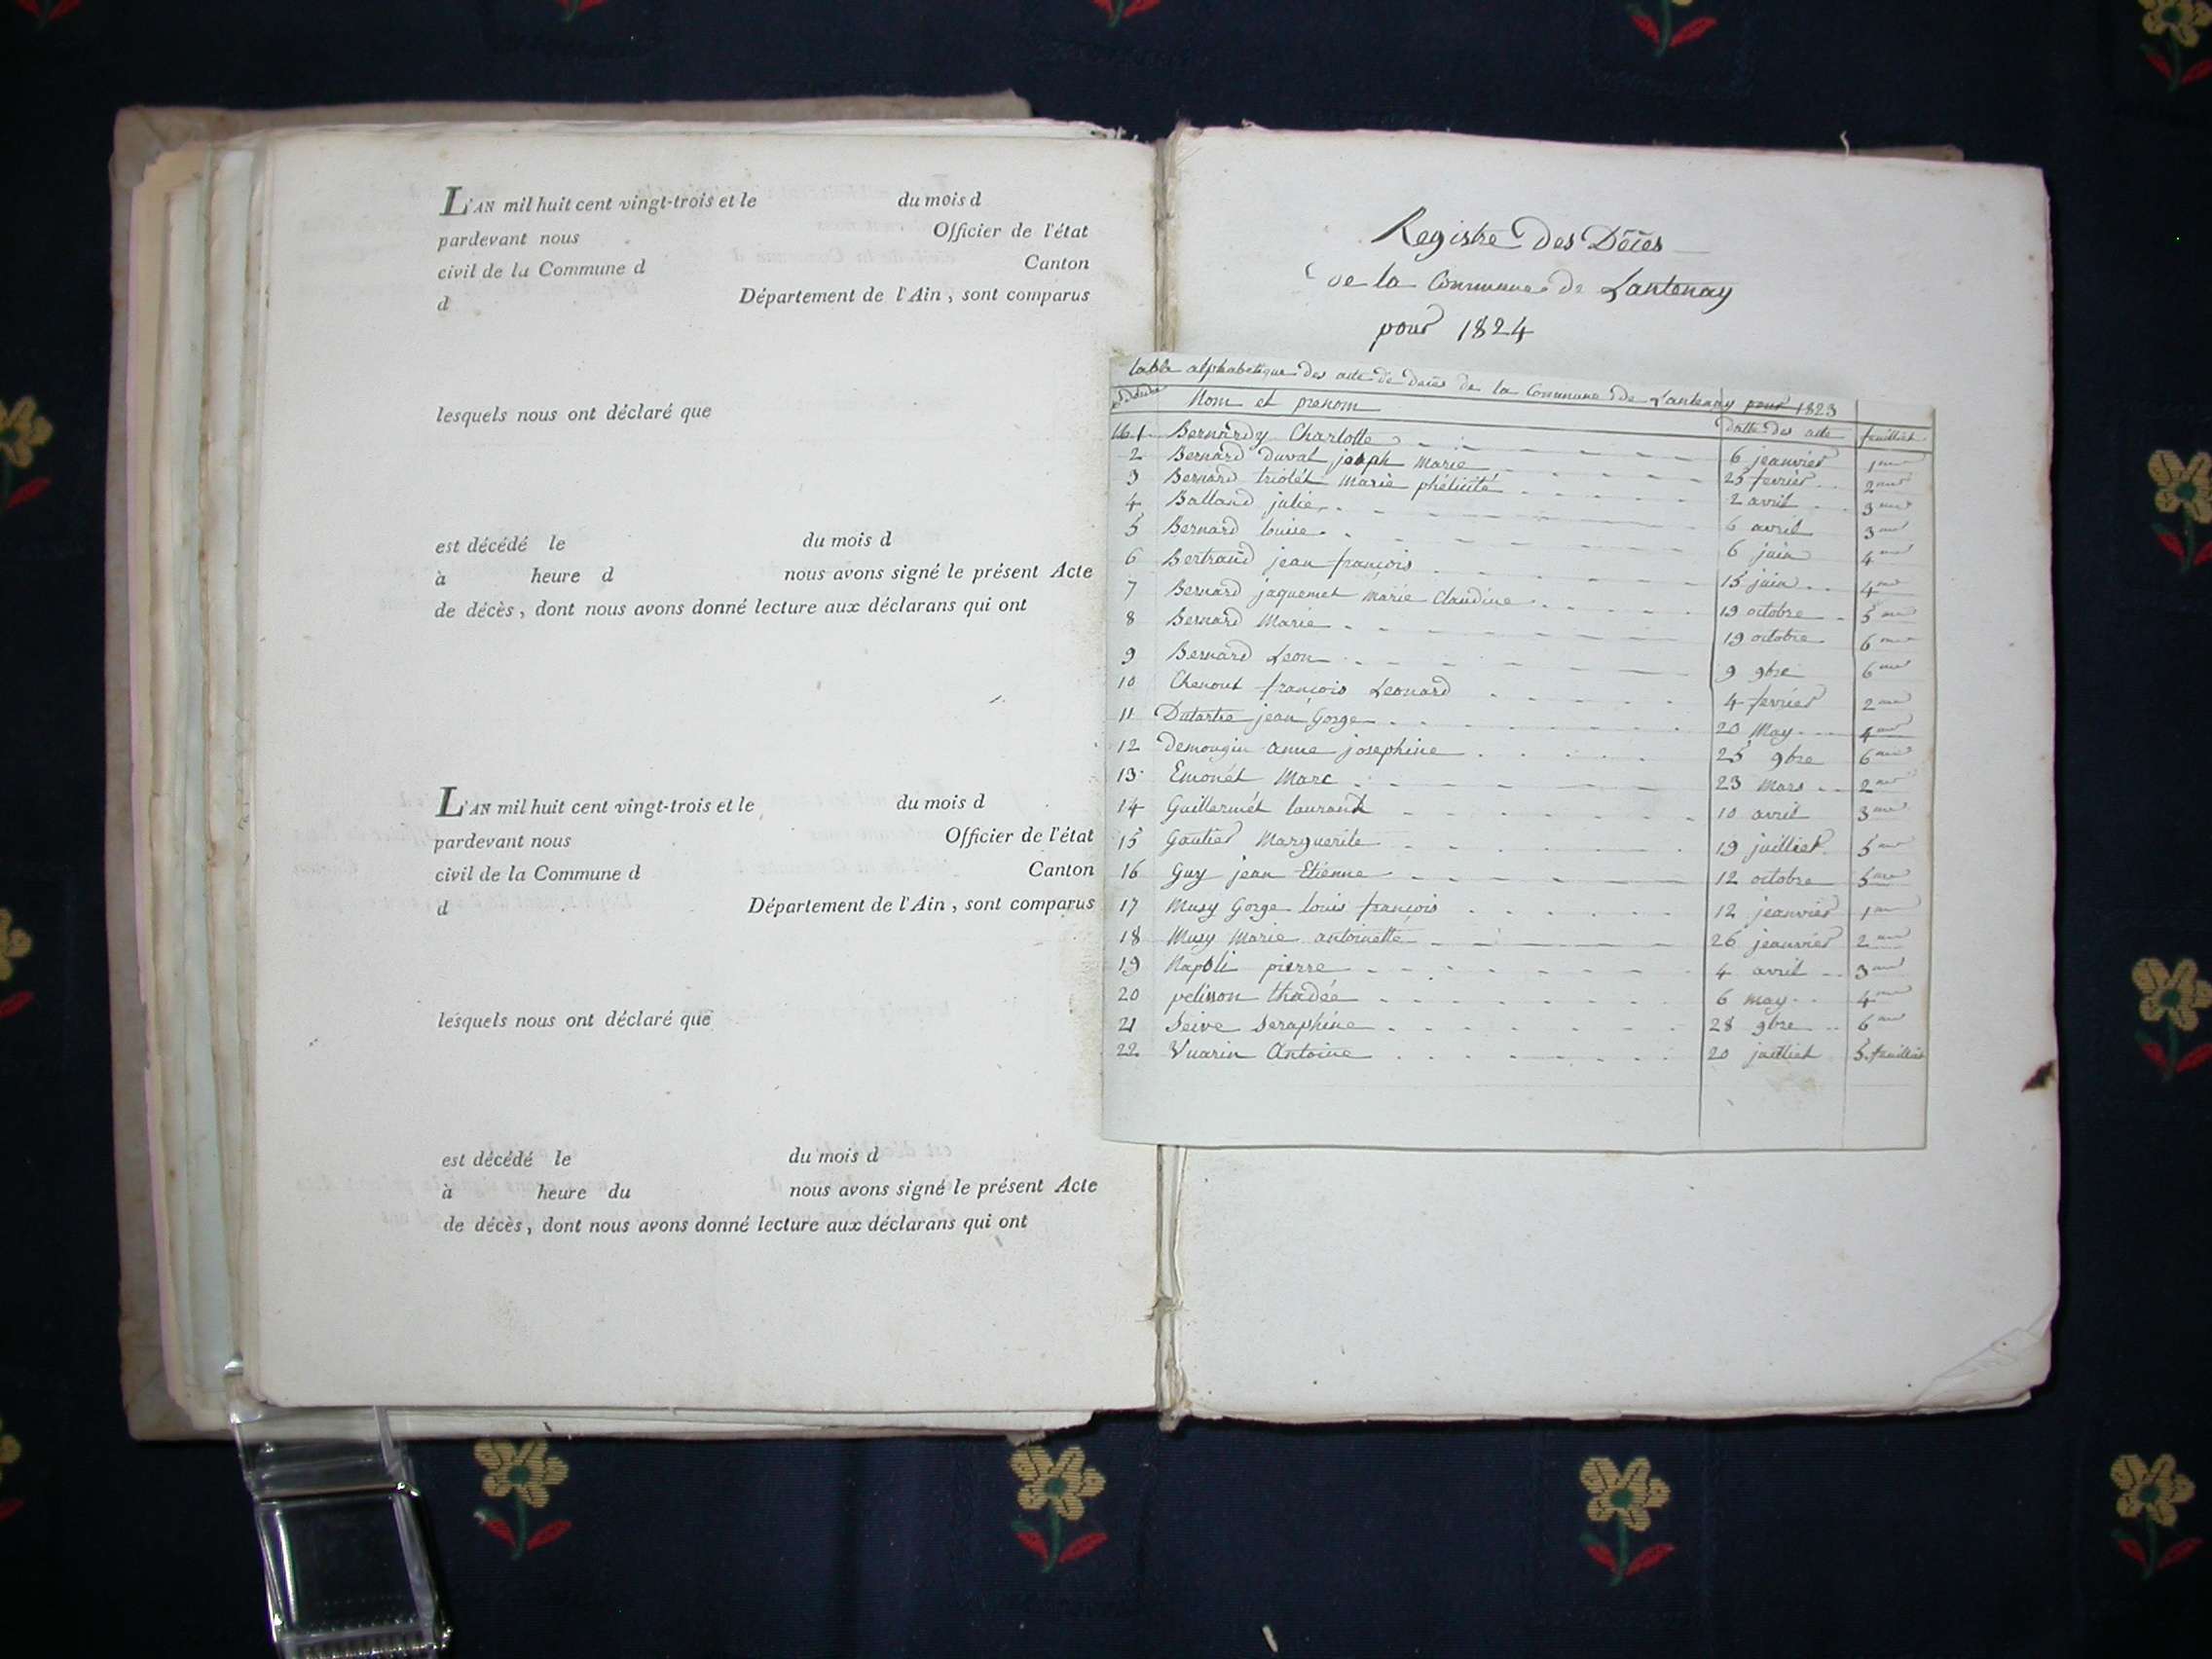 L'AN mil huit cent vingt-trois et le du mois d
pardevant nous Officier de l'état
civil de la Commune d Canton
d Département de l'Ain, sont comparus
lesquels nous ont déclaré que
est décédé le du mois d
à heure d nous avons signé le présent Acte
de décès, dont nous avons donné lecture aux déclarans qui ont
L'AN mil huit cent vingt-trois et le du mois d
pardevant nous Officier de l'état
civil de la Commune d Canton
d Département de l'Ain, sont comparus
lesquels nous ont déclaré que
est décédé le du mois d
à heure du nous avons signé le présent Acte
de décès, dont nous avons donné lecture aux déclarans qui ont
Registre des Décès
de la Commune de Lantenay
pour 1824
table alphabetique des acte de Decès de la Commune de Lantenay pour 1823
Nom et prenom Datte des acte feuillet
1 Bernardy Charlotte 6 jeanvier 1
2 Bernard Duval joseph Marie 25 fevrier 2
3 Bernard triolét Marie phélicité 2 avril 3
4 Balland julie 6 avril 3
5 Bernard louise 6 juin 4
6 Bertrand jean françois 15 juin 4
7 Bernard jaquemet Marie Claudine 19 octobre 5
8 Bernard Marie 19 octobre 6
9 Bernard Leon 9 9bre 6
10 Chenout françois Leonard 4 fevrier 2
11 Dutartre jean Gorge 20 May 4
12 Demougin anne josephine 25 9bre 6
13 Emonét Marc 23 Mars 2
14 Guillermét laurant 10 avril 3
15 Gautier Marguerite 19 juilliet 5
16 Guy jean Etienne 12 octobre 5
17 Musy Gorge louis françois 12 jeanvier 1
18 Musy Marie antoinette 26 jeanvier 2
19 Napoli pierre 4 avril 3
20 pelisson thadée 6 may 4
21 Seive Seraphine 28 9bre 6
22 Vuarin Antoine 20 juilliet 5 feuillet